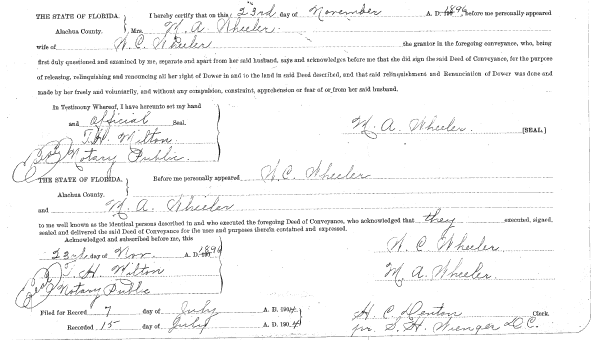 THE STATE OF FLORIDA. I hereby certify that on this 23rd day of November A. D. 1896 before me personally appeared
Alachua County. Mrs. M. A. Wheeler
wife of W. C. Wheeler the grantor in the foregoing conveyance, who, being
first duly questioned and examined by me, separate and apart from her said husband, says and acknowledges before me that she did sign the said Deed of Conveyance, for the purpose
of releasing, relinquishing and renouncing all her right of Dower in and to the land in said Deed described, and that said relinquishment and Renunciation of Dower was done and
made by her freely and voluntarily, and without any compulsion, constraint, apprehension or fear of or from her said husband.
In Testimony Whereof, I have hereunto set my hand
and official Seal.
T. H. Wilton
Notary Public.
M. A. Wheeler. [SEAL.]
THE STATE OF FLORIDA. Before me personally appeared W. C. Wheeler
Alachua County.
and M. A. Wheeler
to me well known as the identical persons described in and who executed the foregoing Deed of Conveyance, who acknowledged that they executed, signed,
sealed and delivered the said Deed of Conveyance for the uses and purposes therein contained and expressed.
Acknowledged and subscribed before me, this
23rd day of Nov. A. D. 1896
T. H. Wilton
Notary Public
W C Wheeler
M A. Wheeler.
Filed for Record 7 day of July A. D. 1904
Recorded 15 day of July A. D. 1904
H. C. Denton Clerk.
pr. S. H. Wienges D. C.